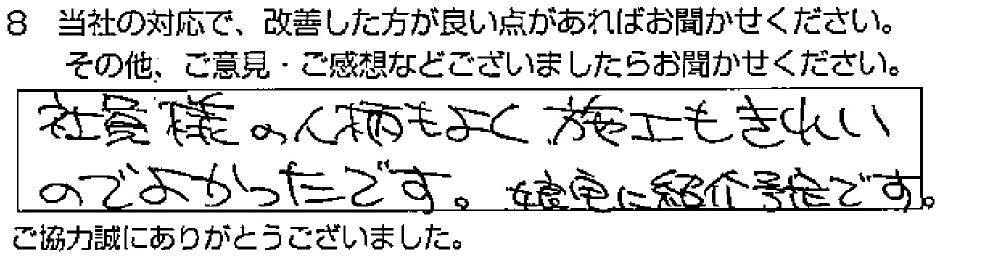 8 当社の対応で、改善した方が良い点があればお聞かせください。
その他、ご意見・ご感想などございましたらお聞かせください。
社員様の人柄もよく施工もきれい
のでよかったです。 に紹介予定です。
ご協力誠にありがとうございました。